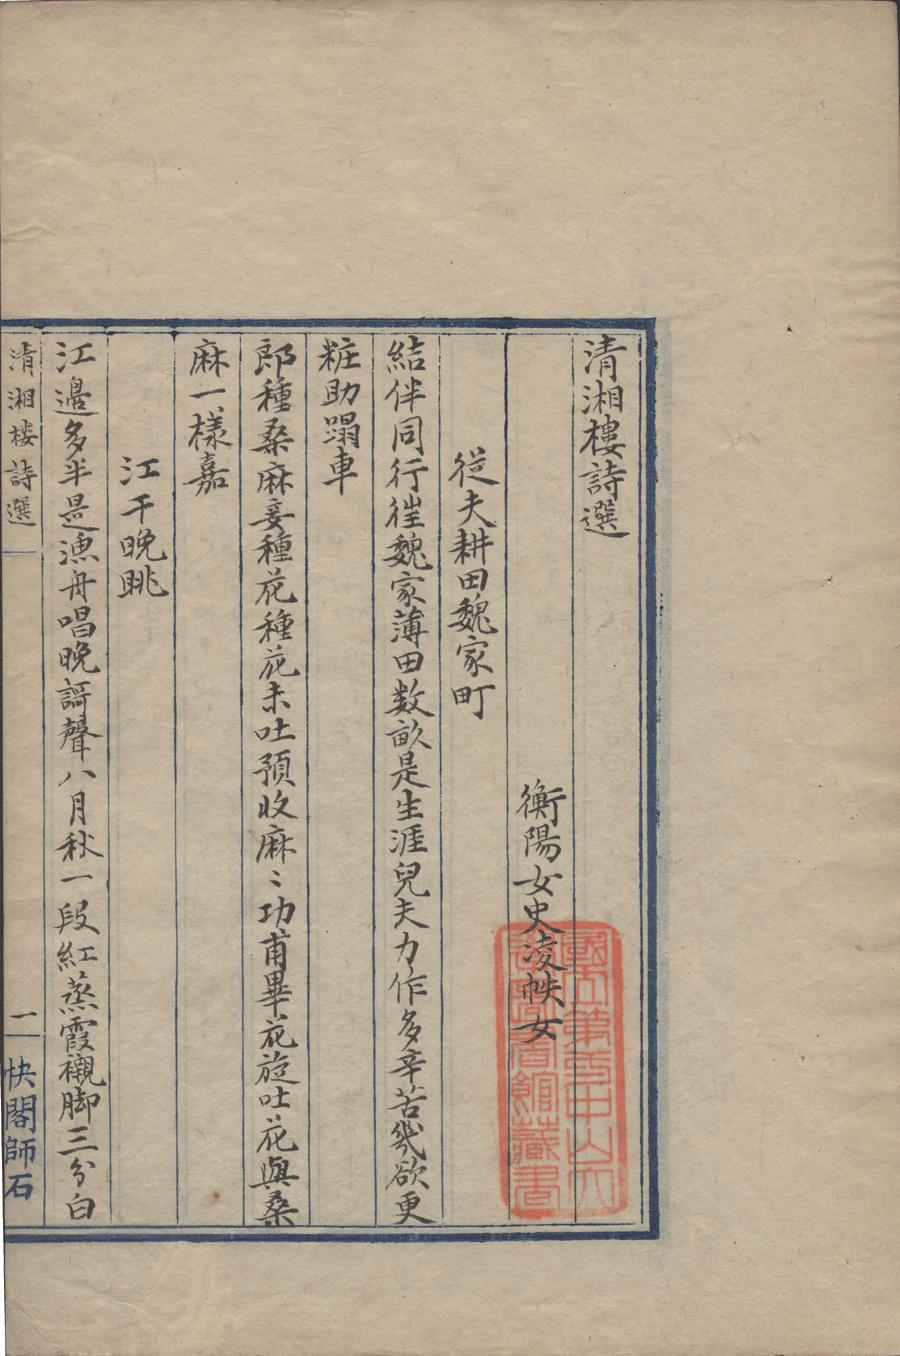 清湘樓詩選
衡陽女史凌帙女
從夫耕田魏家町
結伴同行徃魏家薄田数畝是生涯兒夫力作多辛苦幾欲更
粧助蹋車
郎種桑麻妾種花種花未吐預收麻〻功甫畢花旋吐花與桑
麻一樣嘉
江干晚眺
江邊多半是漁舟唱晚謌聲八月秋一段紅蒸霞襯脚三分白
清湘樓詩選
一
快閣師石
國立第一中山大
學圖書館藏書